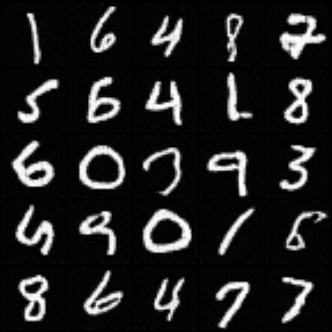 1 6 4 8 2
5 6 4 1 8
6 0 3 9 3
5 9 0 1 5
8 6 4 7 7